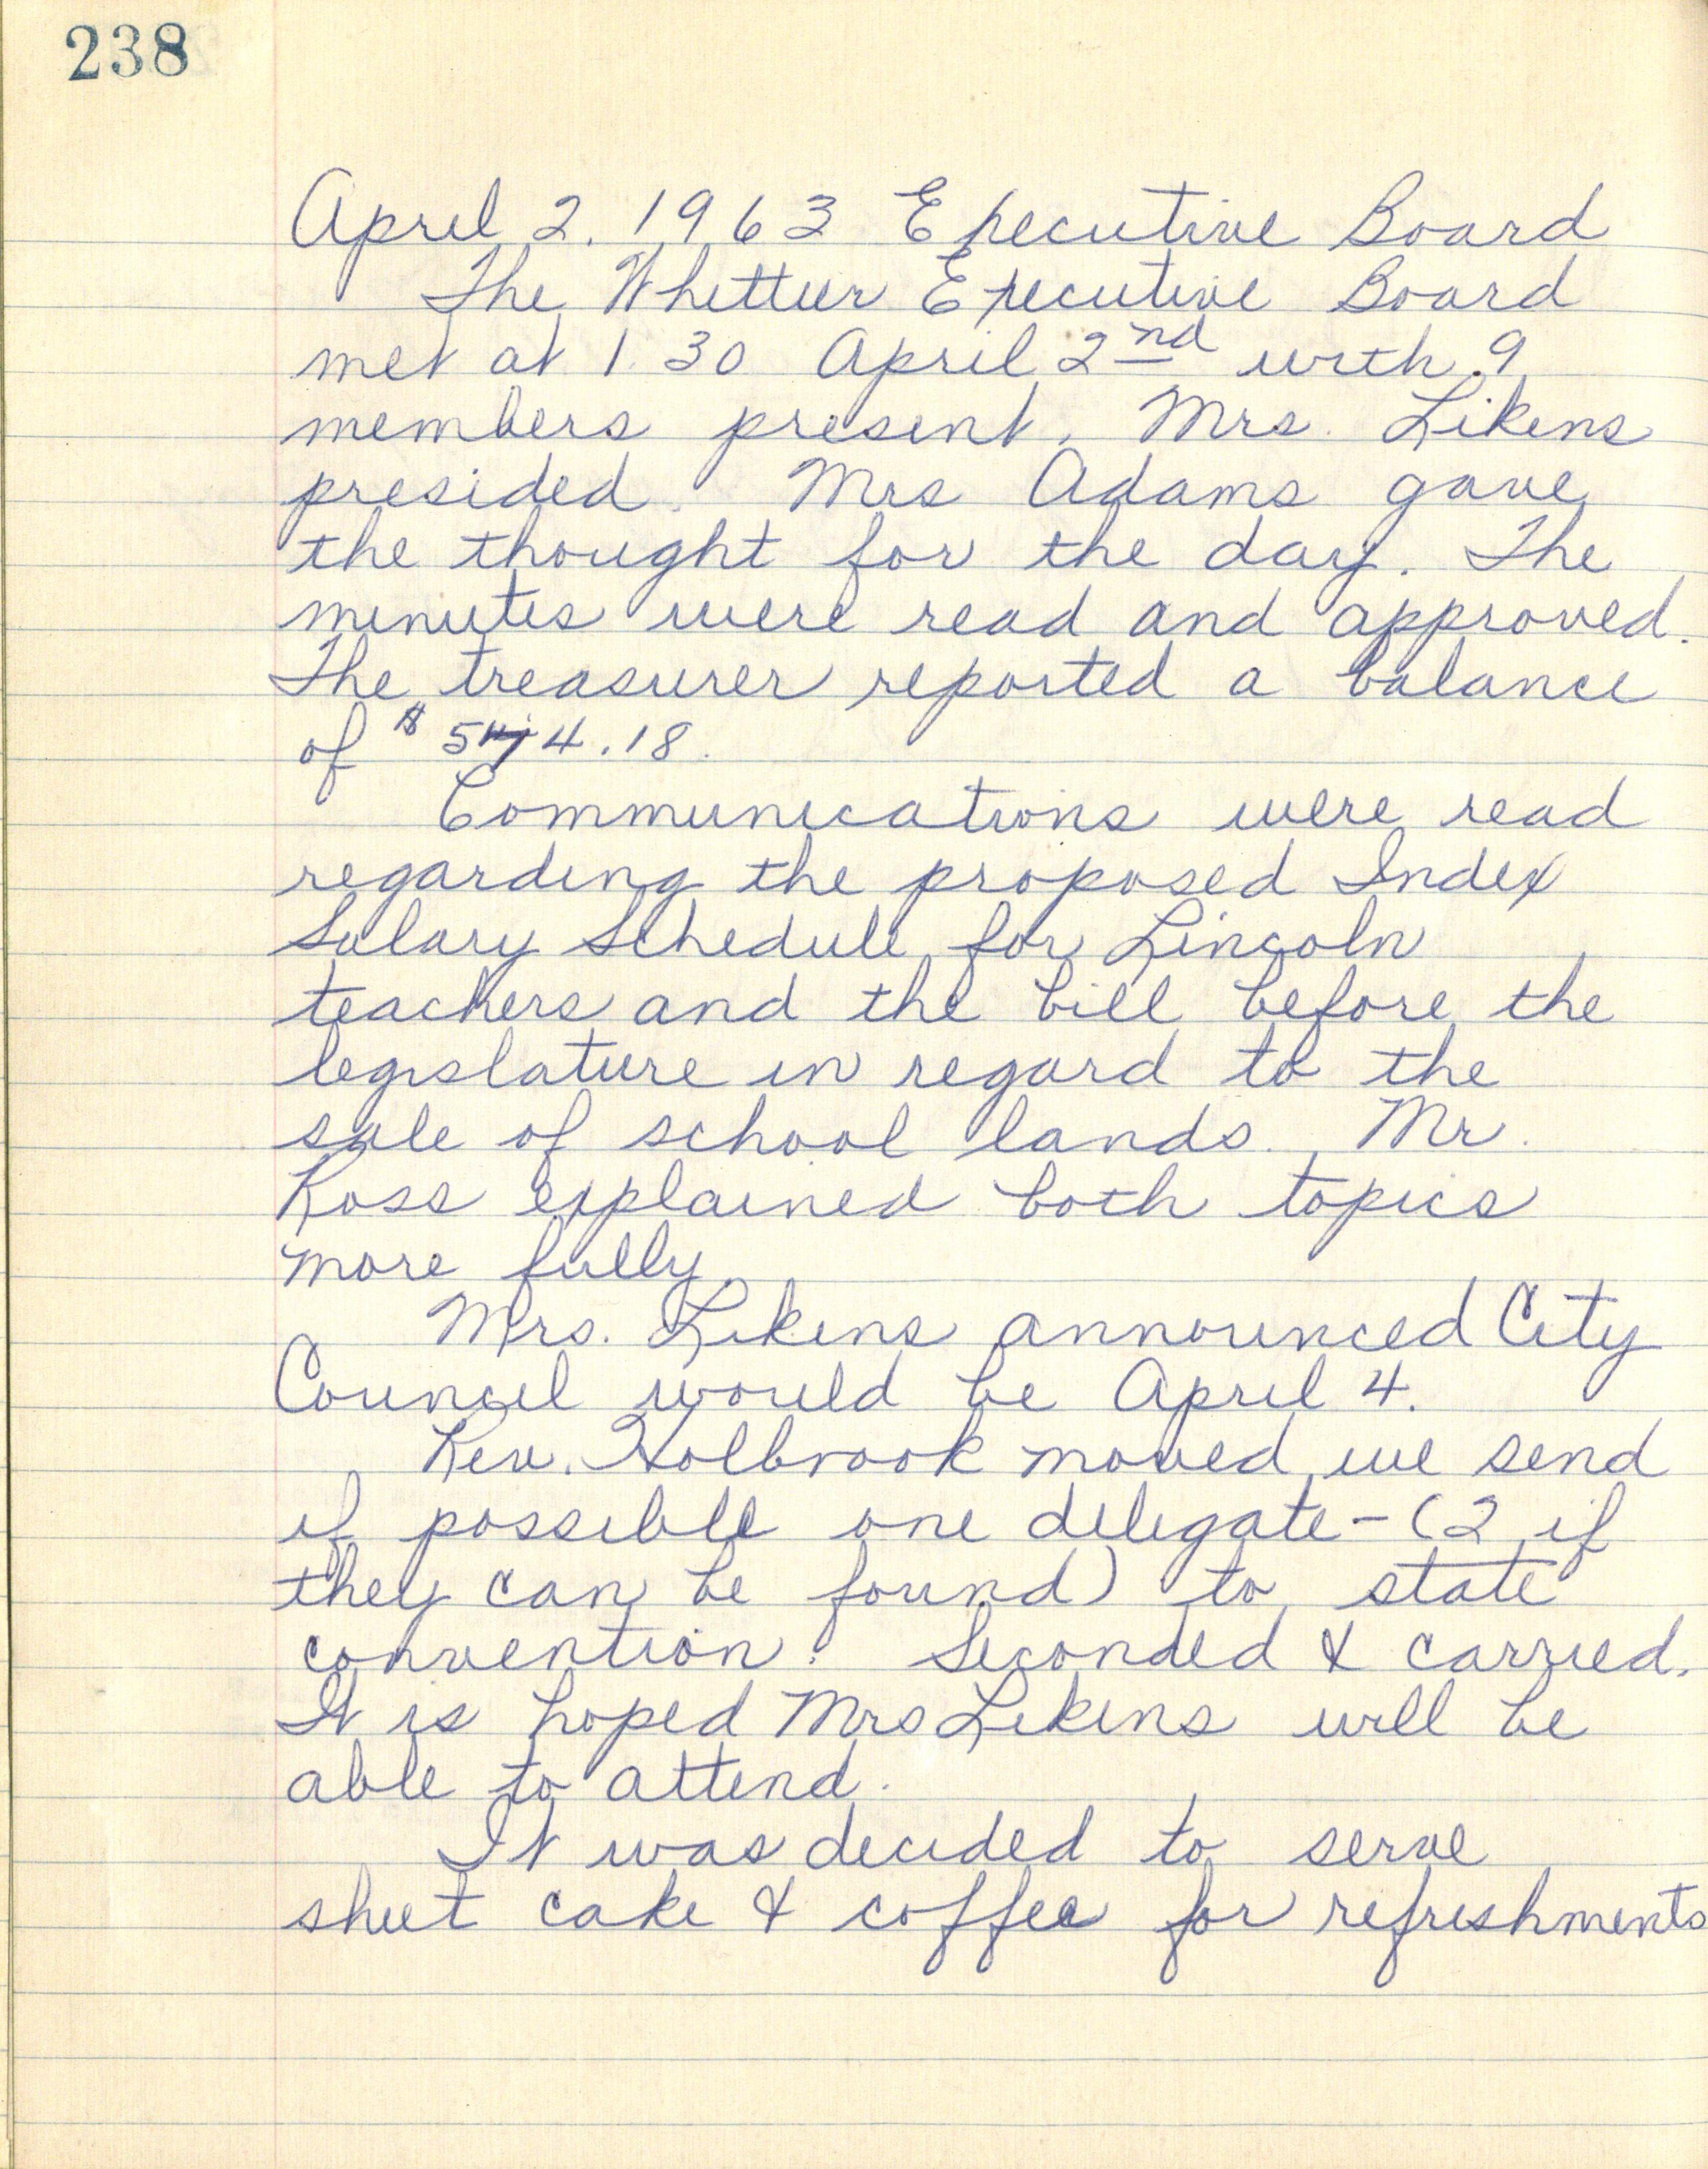 238
April 2. 1963 Executive Board
The Whittier Executive Board
met at 1.30 April 2nd with 9
members present. Mrs. Likens
presided. Mrs Adams gave
the thought for the day. The
minutes were read and approved.
The treasurer reported a balance
of $
Communications were read
regarding the proposed Index
Salary Schedule for Lincoln
teachers and the bill before the
legislature in regard to the
sale of school lands. Mr.
Ross explained both topics
more fully.
Mrs. Likens announced City
Council would be April 4.
Rev. Holbrook moved we send
if possible one delegate - (2 if
they can be found) to state
convention. Seconded & carried.
It is hoped Mrs Likens will be
able to attend.
It was decided to serve
sheet cake & coffee for refreshments